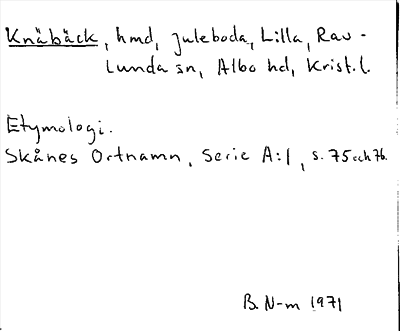 Knäbäck, hmd, Juleboda, Lilla, Rav-
lunda sn, Albo hd, Krist. l.
Etymologi.
Skånes Ortnamn, Serie A:1, s. 75 och 76.
B. N-m 1971